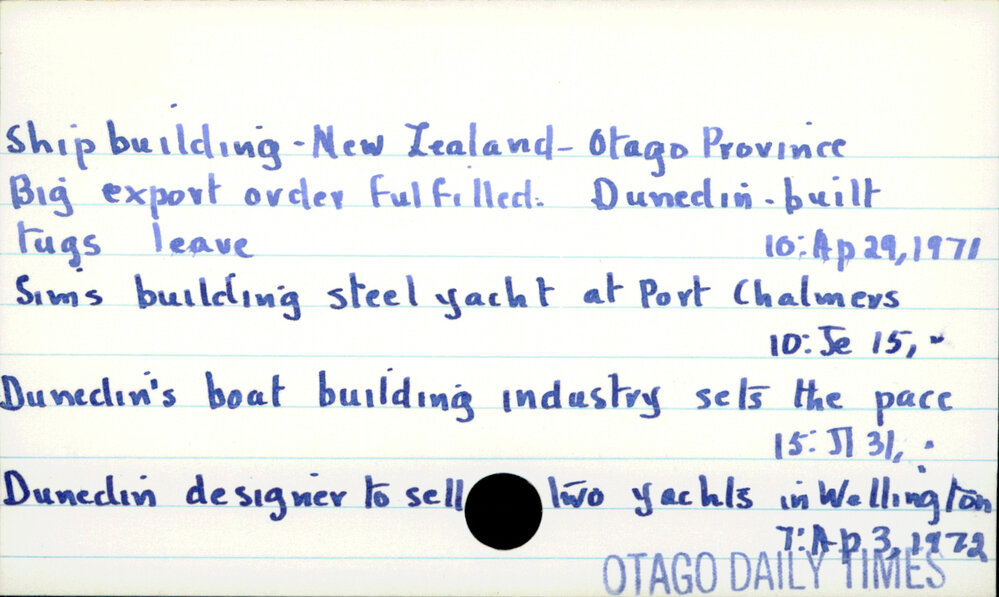 Shipbuilding - New Zealand - Otago Province
Big export order fulfilled. Dunedin-built
tugs leave 10: Ap 29, 1971
Sims building steel yacht at Port Chalmers
10: Je 15, "
Dunedin's boat building industry sets the pace
15: Jl 31, "
Dunedin designer to sell two yachts in Wellington
7: Ap 3, 1972
OTAGO DAILY TIMES